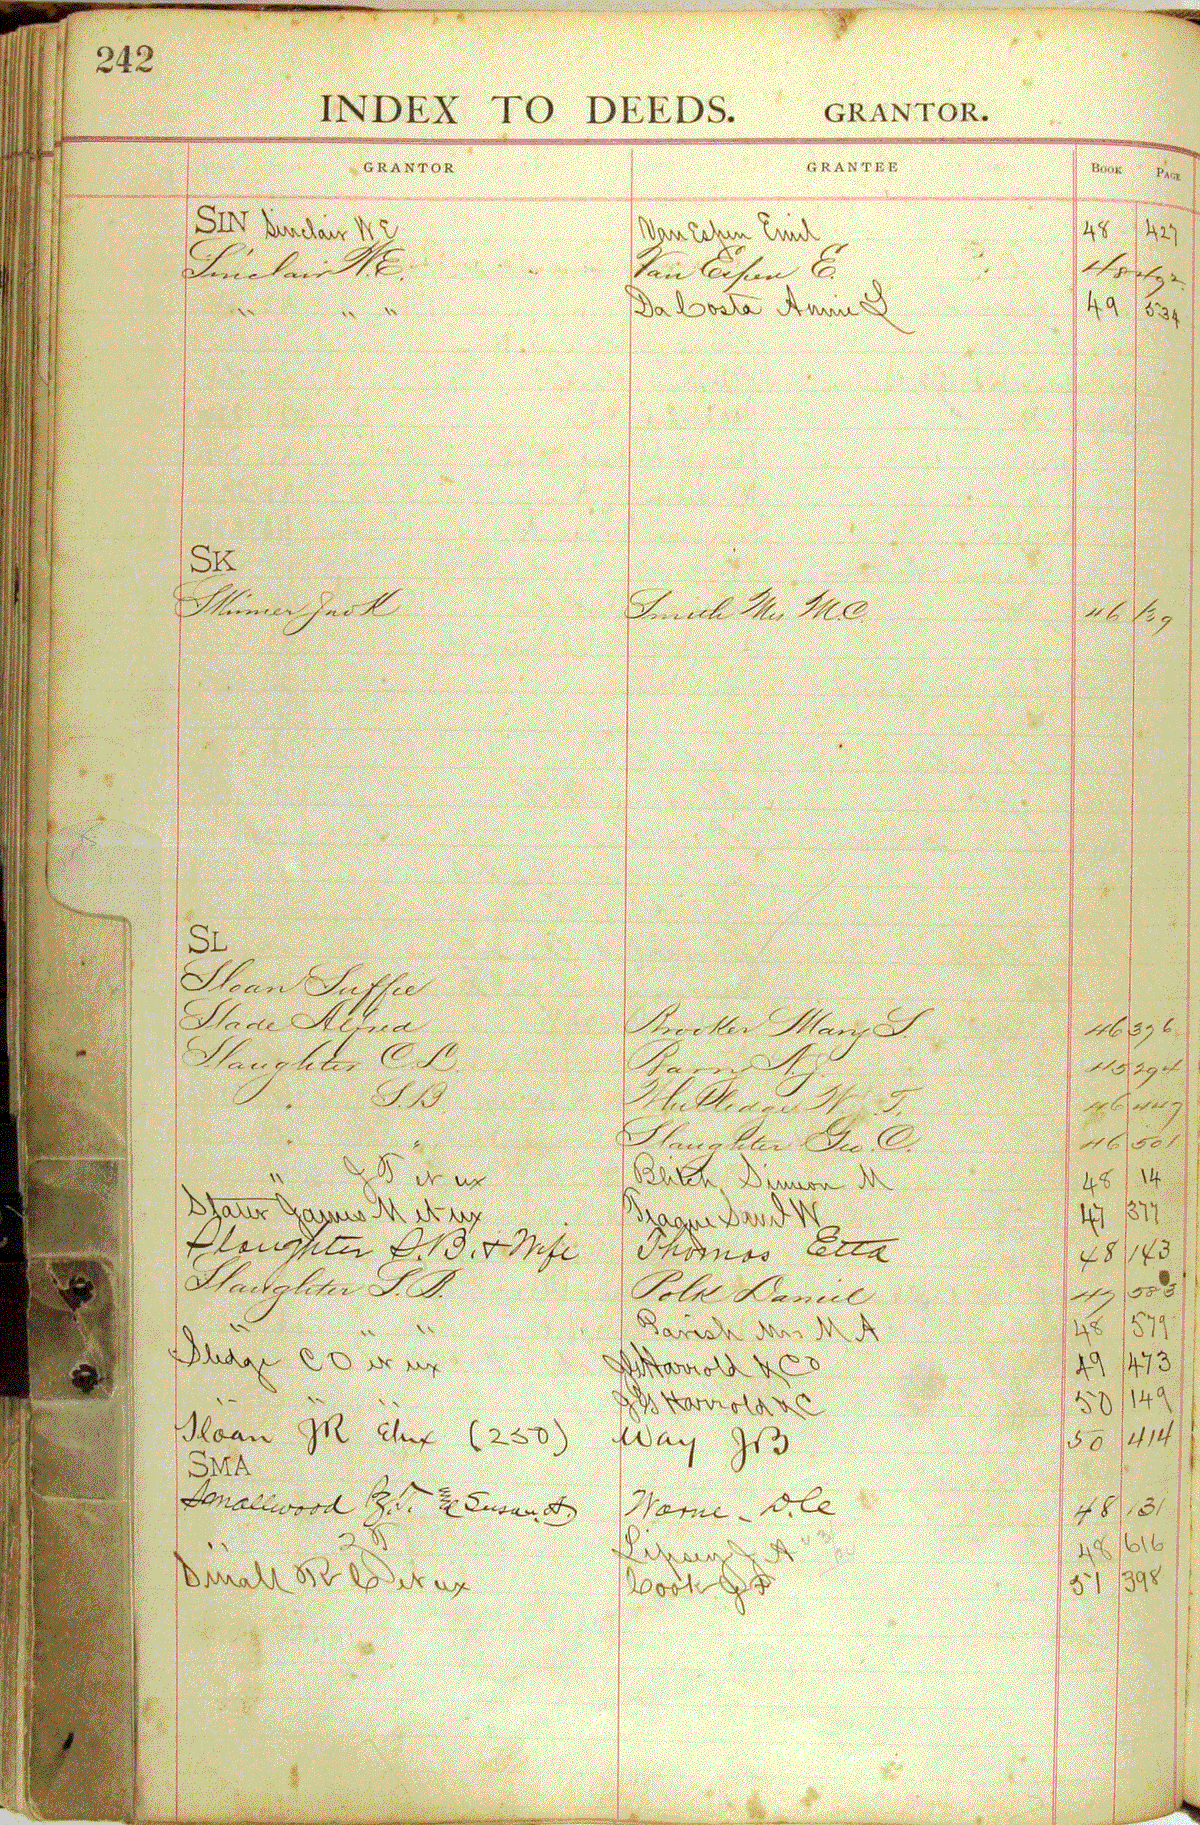 242
INDEX TO DEEDS. GRANTOR.
GRANTOR GRANTEE BOOK PAGE
SIN Sinclair W E Van Espen Emil 48 427
Sinclair W.E. Van Espen E. 48 492
" " " Da Costa Annie L 49 534
SK
Skinner Jno K Smith Mrs M.C. 46 139
SL
Sloan Suffie
Slade Alfred Brooker Mary S. 46 396
Slaughter C.L. Barry 45 294
S.B. W. T. 46 447
" Slaughter Geo. C. 46 501
" J T et ux Blitch, Simeon M 48 14
Slater James M et ux Teague Saml W 47 377
Slaughter S.B. & Wife Thomas Etta 48 143
Slaughter S.B. Polk Daniel 47 583
" " " Parish Mrs M A 48 579
Sledge C O et ux Harrold & Co 49 473
" " " Harrold & C 50 149
Sloan JR Etux (250) Way JB 50 414
SMA
Smallwood Susan. A. Worne 48 131
" Lipsey J A 48 616
Small R C et ux Cook 51 398